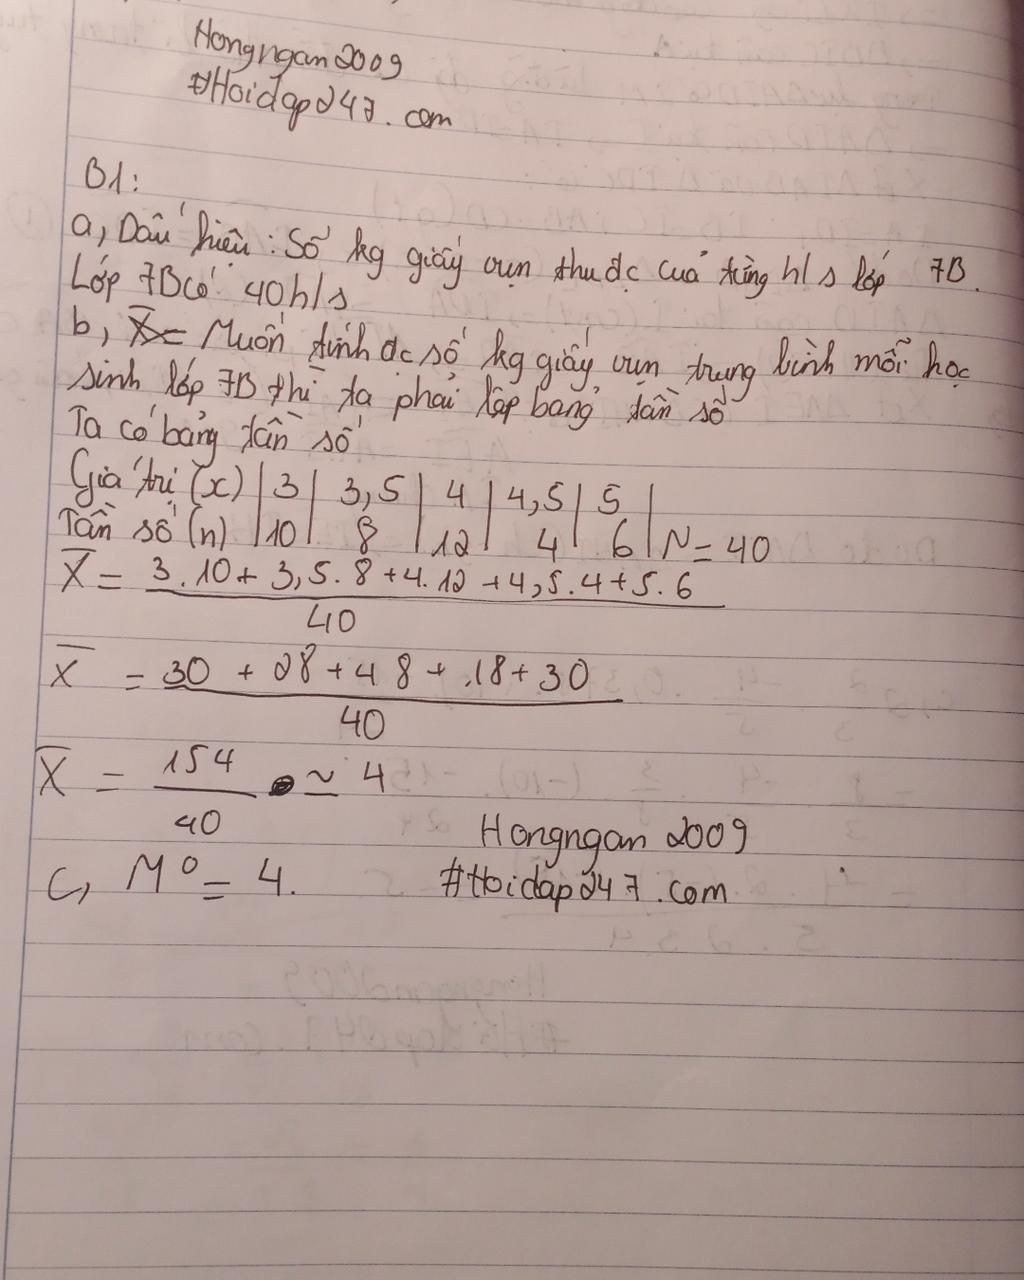 Hongngan2009
#Hoidap247.com
B1:
a, Dấu hiệu: Số kg giấy vụn thu đc của từng h/s lớp 7B.
Lớp 7B có 40 h/s
b, X̄ = Muốn tính đc số kg giấy vụn trung bình mỗi học
sinh lớp 7B thì ta phải lập bảng tần số
Ta có bảng tần số
Giá trị (x) | 3 | 3,5 | 4 | 4,5 | 5 |
Tần số (n) | 10 | 8 | 12 | 4 | 6 | N = 40
X̄ = 3.10 + 3,5.8 + 4.12 + 4,5.4 + 5.6
40
X̄ = 30 + 28 + 48 + .18 + 30
40
X̄ = 154 ≃ 4
40
Hongngan 2009
c, M⁰ = 4.
#Hoidap247.com